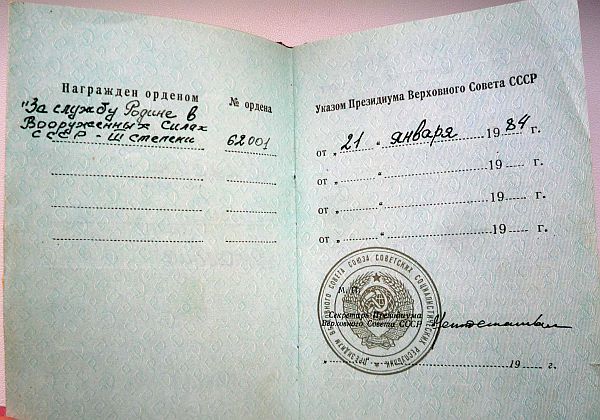 Награжден орденом
№ ордена
"За службу Родине в
Вооруженных Силах
СССР - III степени
62001
Указом Президиума Верховного Совета СССР
от „ 21 “ января 19 84 г.
от „ “ 19 г.
от „ “ 19 г.
от „ “ 19 г.
М. П.
Секретарь Президиума
Верховного Совета СССР
19 г.
ПРЕЗИДИУМ ВЕРХОВНОГО СОВЕТА СОЮЗА СОВЕТСКИХ СОЦИАЛИСТИЧЕСКИХ РЕСПУБЛИК